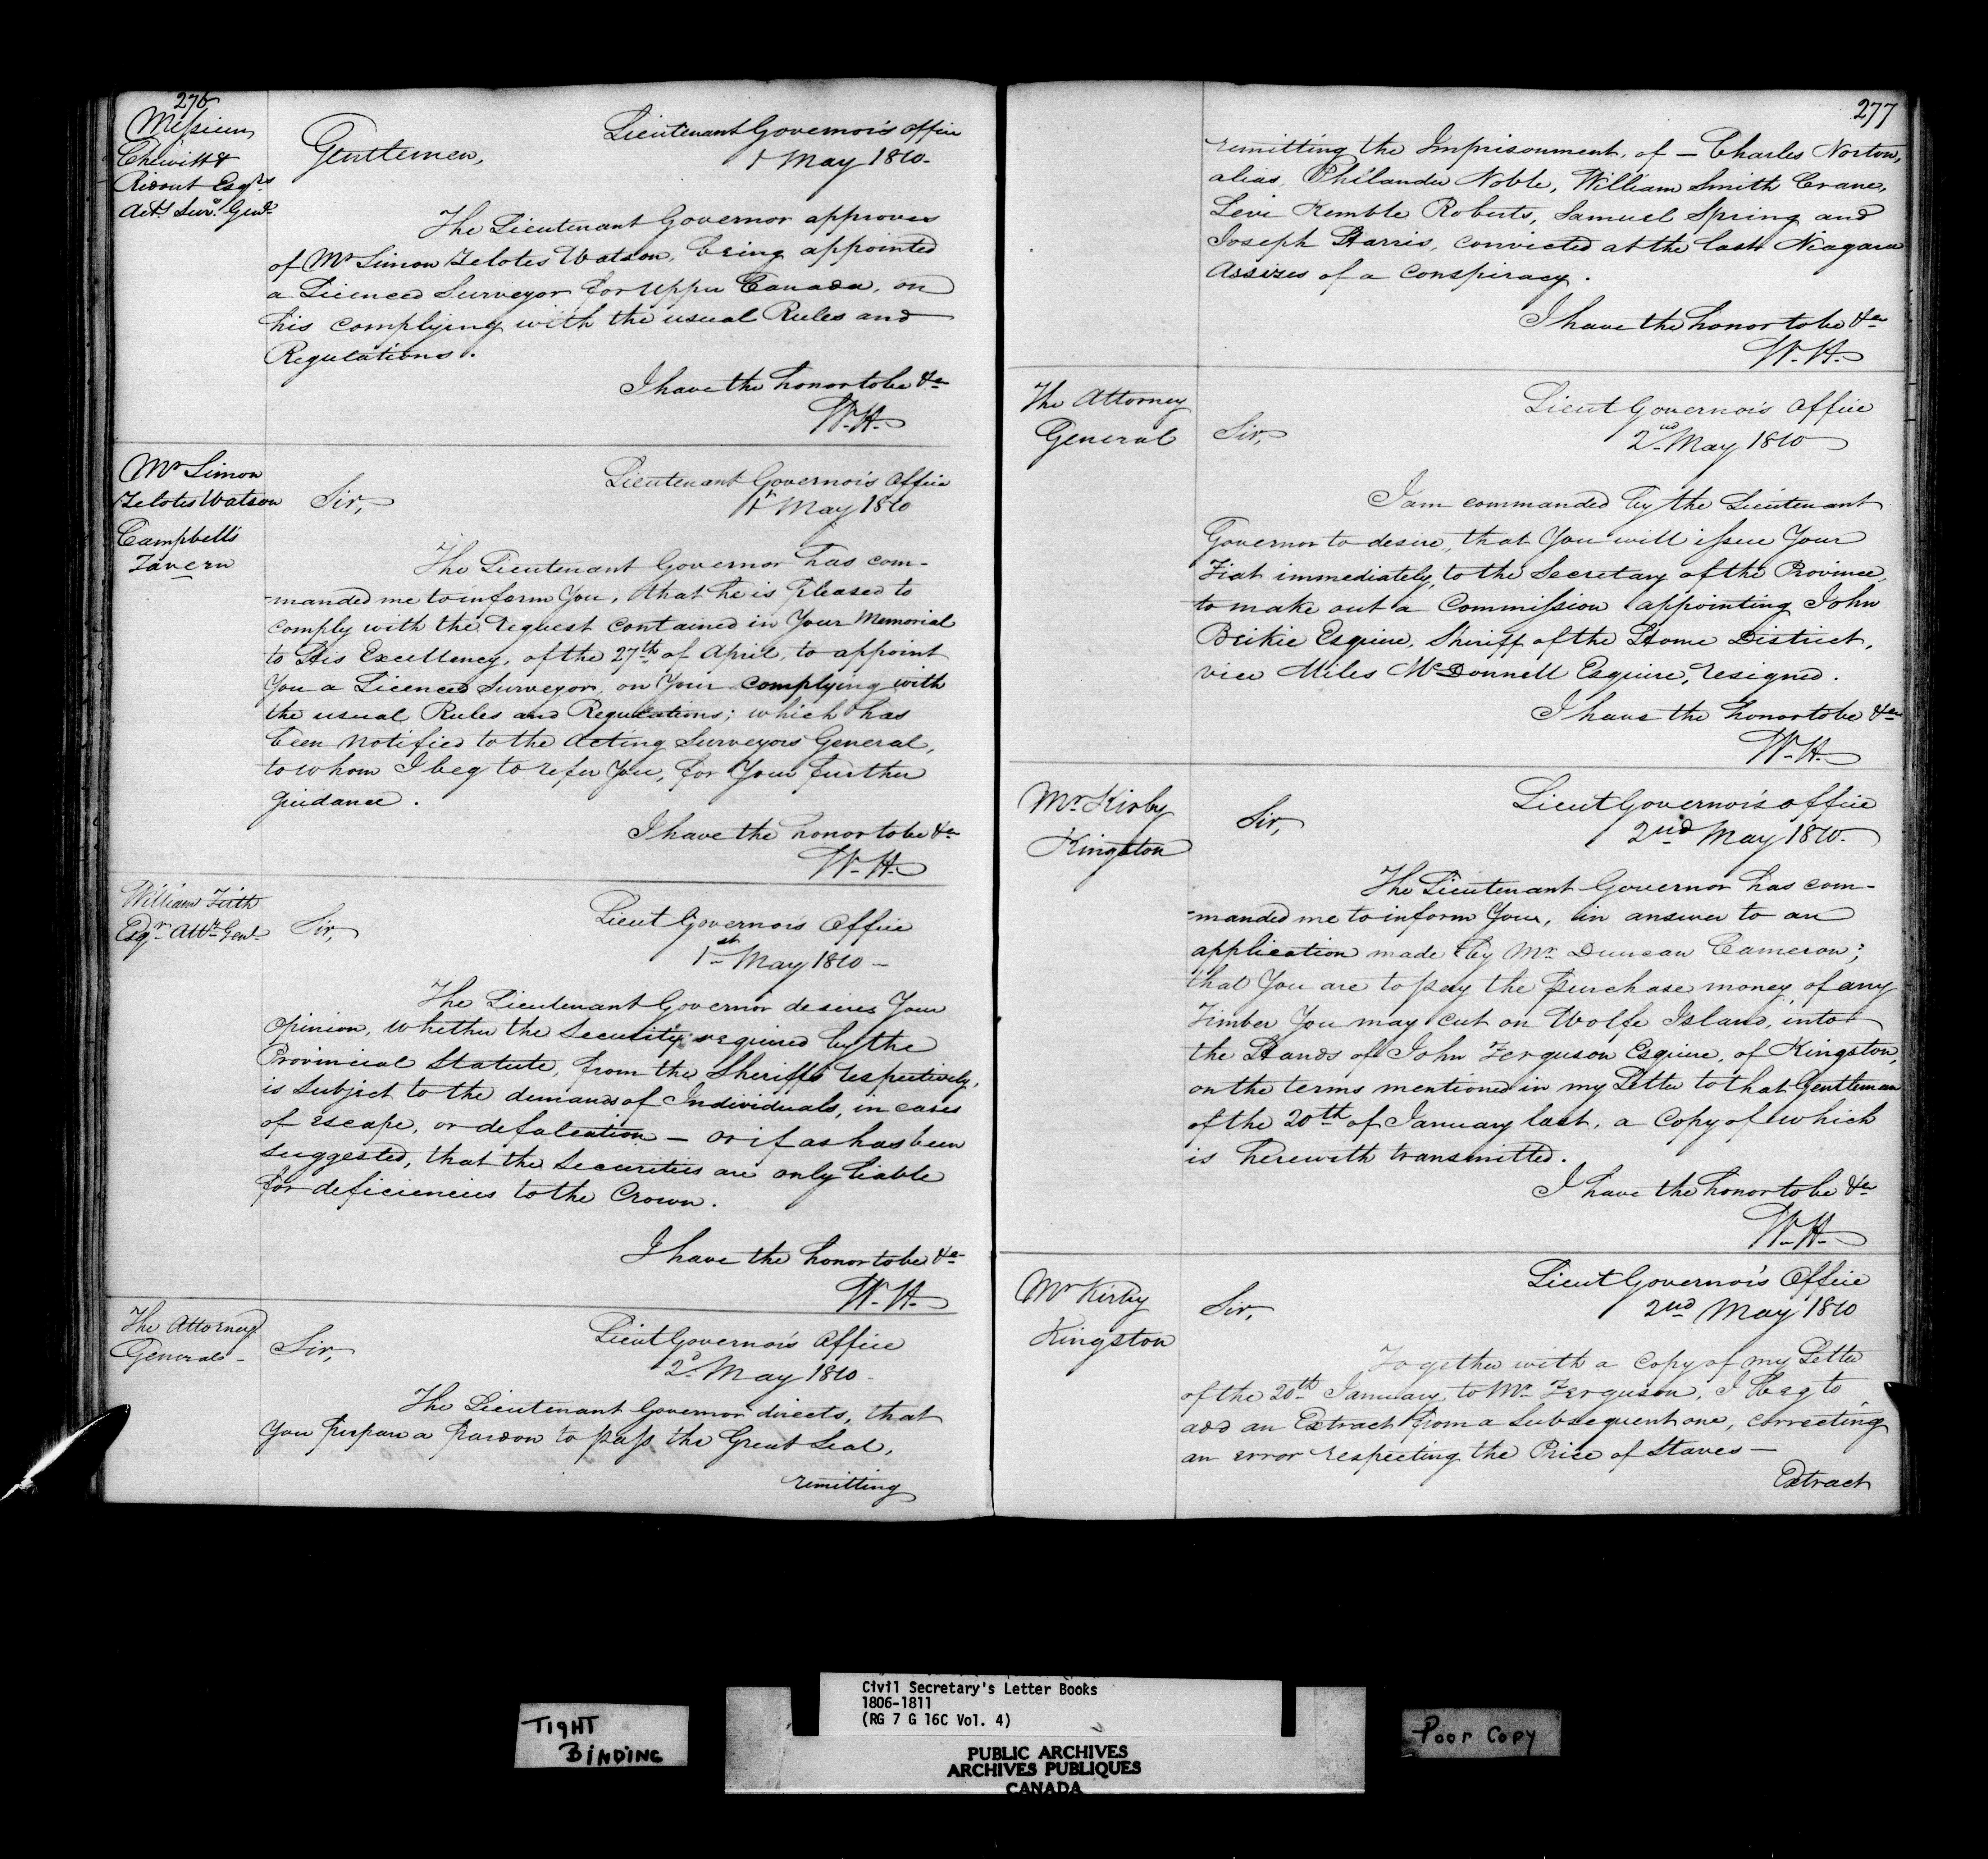 276
Messieurs
Chewitt &
Ridout Esqrs
Actg Survr Genl
Lieutenant Governor's Office
1 May 1810.
Gentlemen,
The Lieutenant Governor approves
of Mr Simon Zelotes Watson, being appointed
a Licenced Surveyor for Upper Canada, on
his complying with the usual Rules and
Regulations.
I have the honor to be &c
W. H.
Mr Simon
Zelotes Watson
Campbell's
Tavern
Lieutenant Governor's Office
1st May 1810
Sir,
The Lieutenant Governor has com-
-manded me to inform You, that he is pleased to
comply with the request contained in Your Memorial
to His Excellency, of the 27th of April, to appoint
You a Licenced Surveyor, on Your complying with
the usual Rules and Regulations; which has
been notified to the Acting Surveyors General,
to whom I beg to refer You, for Your further
guidance.
I have the honor to be &c
W. H.
William Firth
Esqr Attr Genl
Lieut Governor's Office
1st May 1810 -
Sir,
The Lieutenant Governor desires Your
Opinion, whether the Security required by the
Provincial Statute, from the Sheriffs respectively,
is subject to the demands of Individuals, in cases
of escape, or defalcation - or if as has been
suggested, that the Securities are only liable
for deficiencies to the Crown.
I have the honor to be &c
W. H.
The Attorney
General -
Lieut Governor's Office
2d May 1810 -
Sir,
The Lieutenant Governor directs, that
You prepare a pardon to pass the Great Seal,
remitting
277
remitting the Imprisonment, of - Charles Norton,
alias, Philander Noble, William Smith Crane,
Levi Kemble Roberts, Samuel Spring and
Joseph Harris, convicted at the last Niagara
Assizes of a Conspiracy.
I have the honor to be &c
W. H.
The Attorney
General
Lieut Governor's Office
2nd May 1810
Sir,
I am commanded by the Lieutenant
Governor to desire, that You will issue Your
Fiat immediately, to the Secretary of the Province,
to make out a Commission appointing John
Beikie Esquire, Sheriff of the Home District,
vice Miles McDonnell Esquire, resigned.
I have the honor to be &c
W. H.
Mr Kirby
Kingston
Lieut Governor's Office
2nd May 1810.
Sir,
The Lieutenant Governor has com-
-manded me to inform You, in answer to an
application made by Mr Duncan Cameron;
that You are to pay the purchase money, of any
Timber You may cut on Wolfe Island, into
the Hands of John Ferguson Esquire, of Kingston,
on the terms mentioned in my Letter to that Gentleman
of the 20th of January last, a Copy of which
is herewith transmitted.
I have the honor to be &c
W. H.
Mr Kirby
Kingston
Lieut Governor's Office
2nd May 1810
Sir,
Together with a Copy of my Letter
of the 20th January, to Mr Ferguson, I beg to
add an Extract from a Subsequent one, correcting
an error respecting the Price of Staves -
Extract
TIGHT
BINDING
Civil Secretary's Letter Books
1806-1811
(RG 7 G 16C Vol. 4)
PUBLIC ARCHIVES
ARCHIVES PUBLIQUES
CANADA
Poor Copy